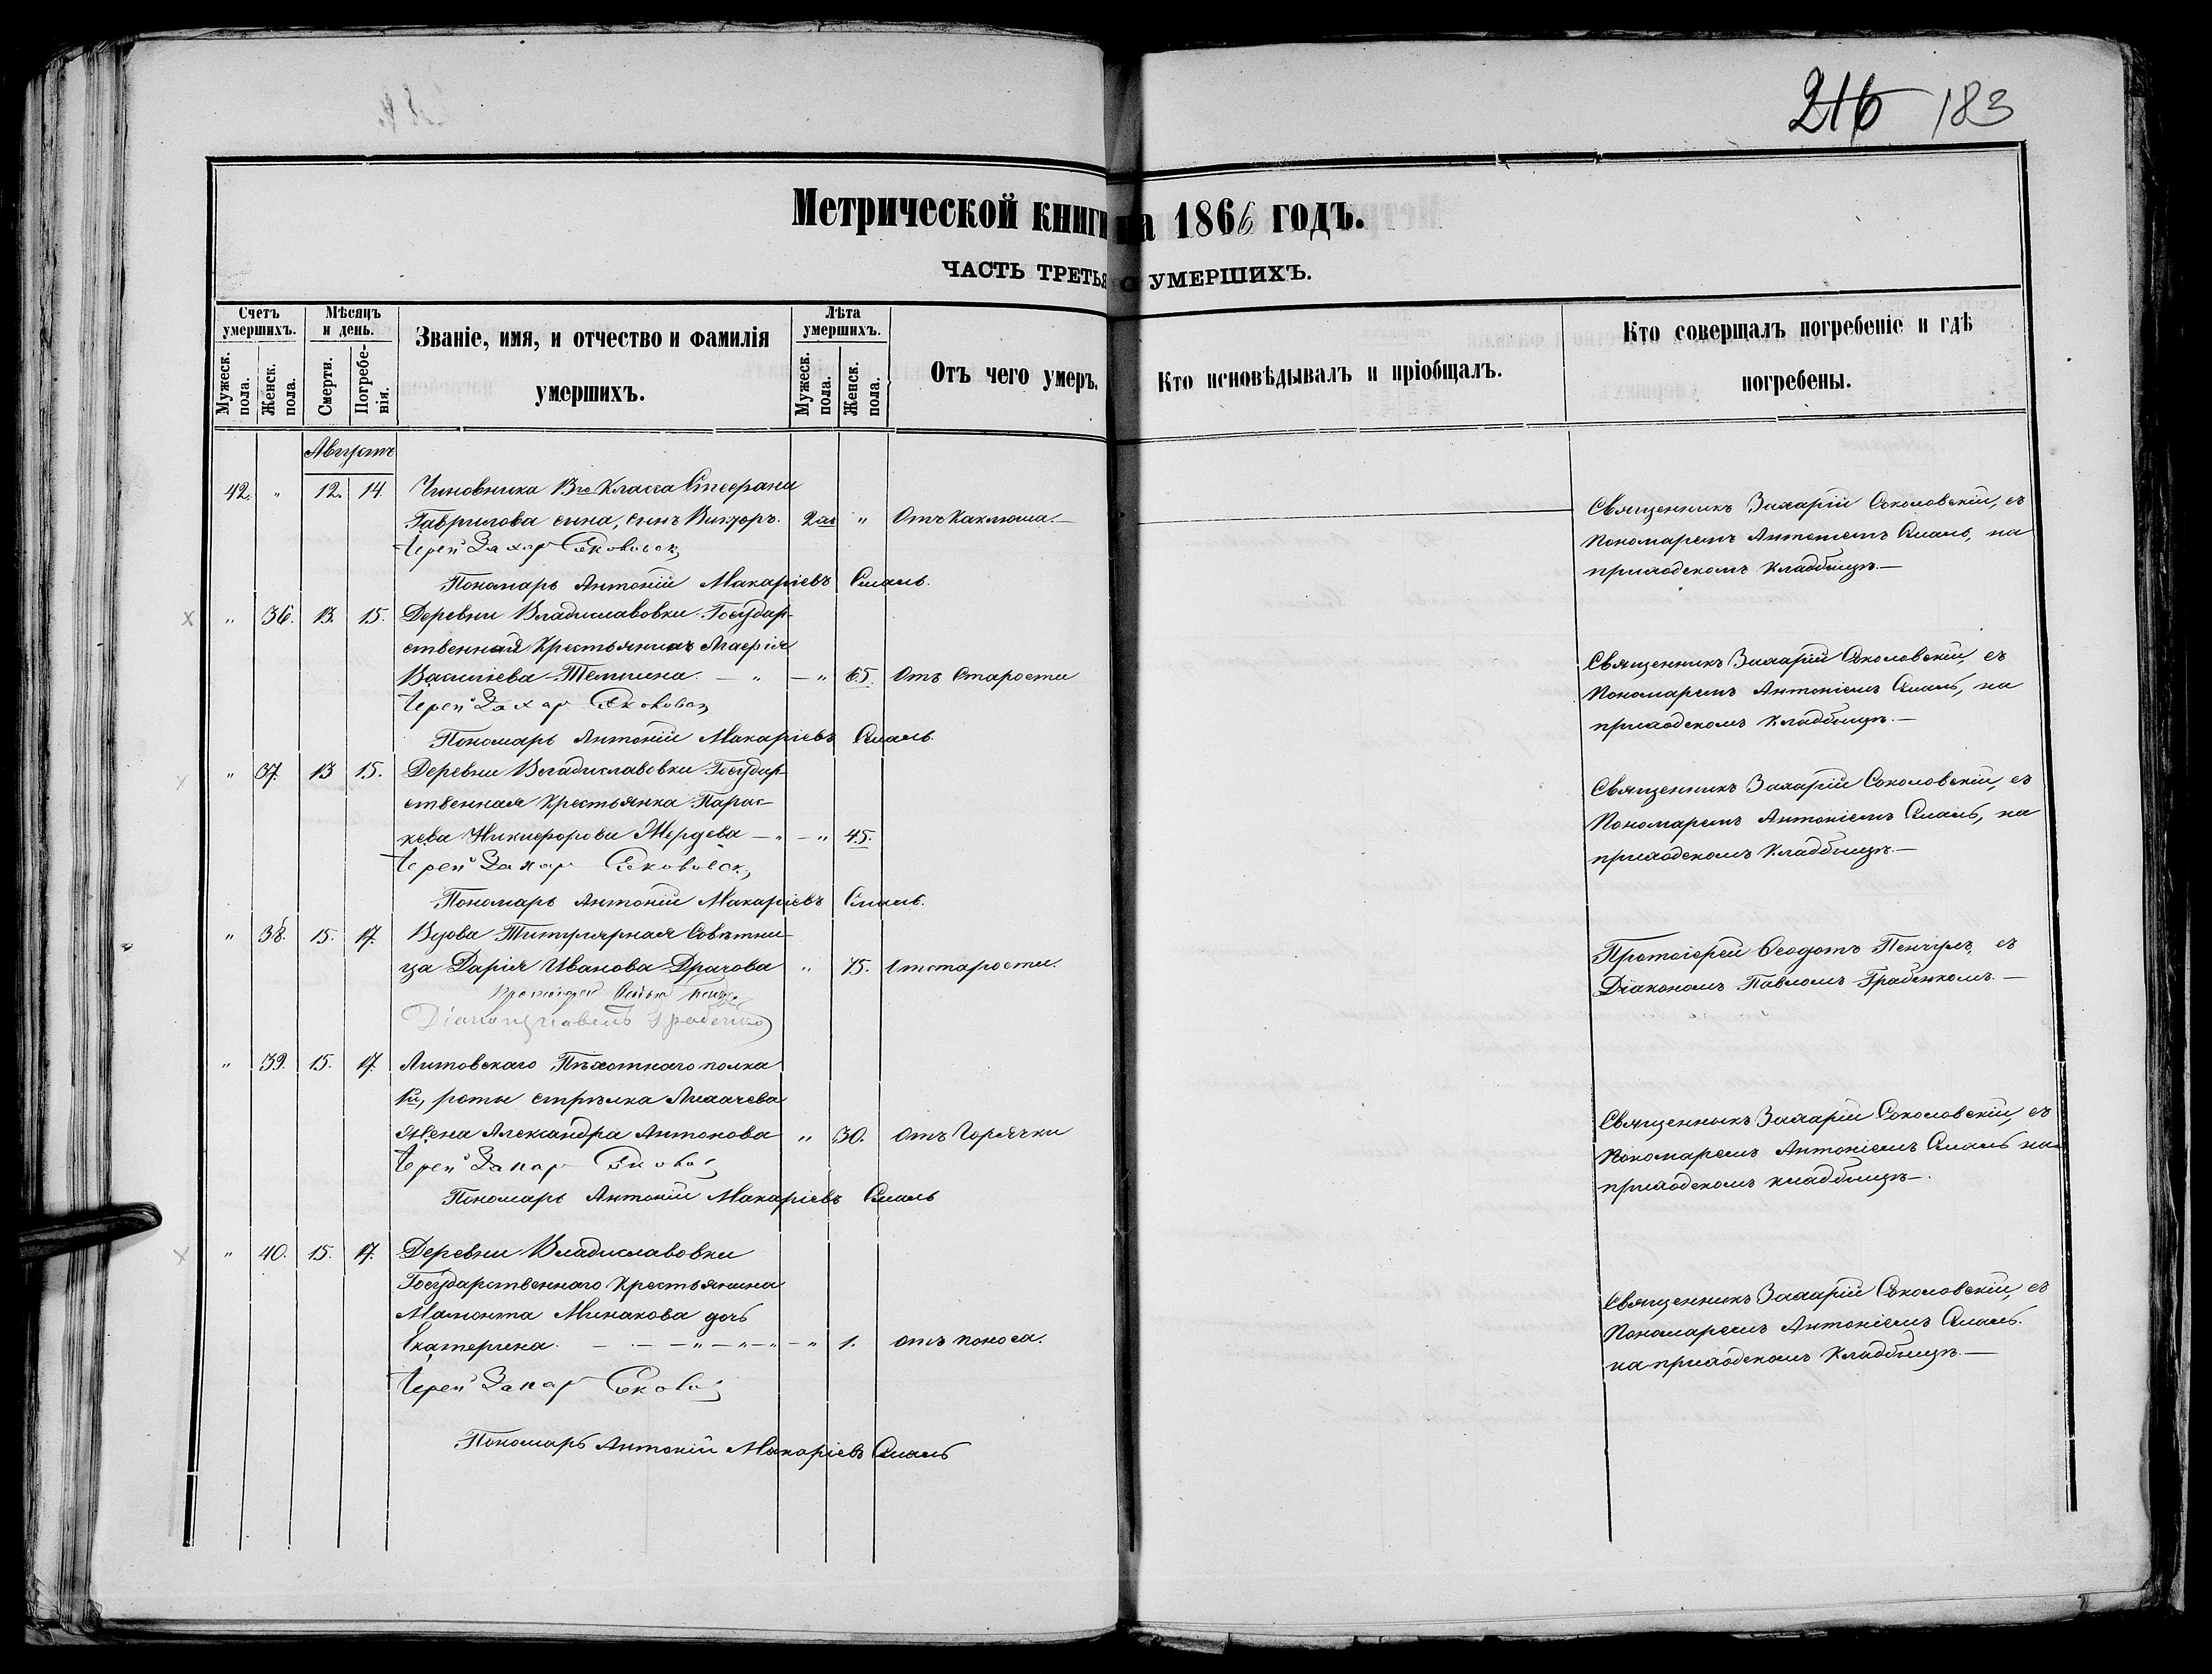 216 183
Метрической книги на 1866 годъ.
ЧАСТЬ ТРЕТЬЯ О УМЕРШИХЪ.
Счетъ умершихъ.
Мужеск. пола.
Женск. пола.
Мѣсяцъ и день.
Смерти.
Погребенія.
Званіе, имя, и отчество и фамилія
умершихъ.
Лѣта умершихъ.
Мужеск. пола.
Женск. пола.
Отъ чего умеръ.
Кто исповѣдывалъ и пріобщалъ.
Кто совершалъ погребеніе и гдѣ
погребены.
Августъ
42. " 12. 14. Чиновника 13го Класса Стефана
Гаврилова сына, сынъ Викторъ. "  Отъ Каклюша.—
Іерей Захар
Пономарь Антоній Макаріевъ Смаль.
Священникъ Захарій Соколовскій, съ
Пономаремъ Антоніемъ Смаль, на
приходскомъ Кладбищѣ.—
" 36. 13. 15. Деревни Владиславовки Государ-
ственная Крестьянка Марѳія
Василіева — " — " 65. Отъ Старости
Іерей Захар
Пономарь Антоній Макаріевъ Смаль.
Священникъ Захарій Соколовскій, съ
Пономаремъ Антоніемъ Смаль, на
приходскомъ Кладбищѣ.—
" 37. 13 15. Деревни Владиславовки Государ-
ственная Крестьянка Парас-
кева Никифорова Жердева — " — " 45.
Іерей Захар
Пономарь Антоній Макаріевъ Смаль.
Священникъ Захарій Соколовскій, съ
Пономаремъ Антоніемъ Смаль, на
приходскомъ Кладбищѣ.—
" 38. 15. 17. Вдова Титулярная Совѣтни-
ца Дарія Иванова Драчова " 75. Отъ старости.
Протоіерей
Діаконъ Павелъ Грабенко
Протоіерей Ѳеодотъ съ
Діакономъ Павломъ Грабенкомъ.—
" 39. 15. 17. Литовскаго Пѣхотнаго полка
роты стрѣлка Лихачева
Жена Александра Антонова " 30. Отъ Горячки
Іерей Захар
Пономарь Антоній Макаріевъ Смаль
Священникъ Захарій Соколовскій, съ
Пономаремъ Антоніемъ Смаль на
приходскомъ кладбищѣ—.
" 40. 15. 17. Деревни Владиславовки
Государственнаго Крестьянина
Мамонта Минакова дочь
Екатерина. — — — " — " — " — " 1. отъ поноса.
Іерей Захар
Пономарь Антоній Макаріевъ Смаль
Священникъ Захарій Соколовскій, съ
Пономаремъ Антоніемъ Смаль.
на приходскомъ Кладбищѣ.—